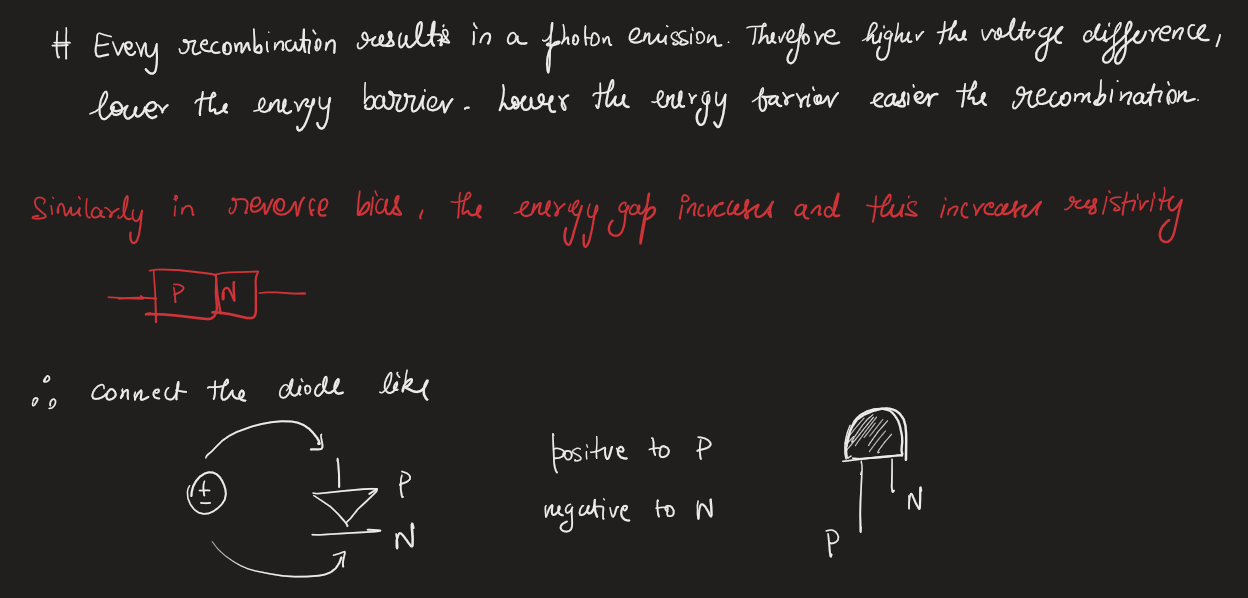 # Every recombination results in a photon emission. Therefore higher the voltage difference,
lower the energy barrier. Lower the energy barrier easier the recombination.
Similarly in reverse bias, the energy gap increases and this increases resistivity
P N
∴ connect the diode like
±
P
N
positive to P
negative to N
P
N